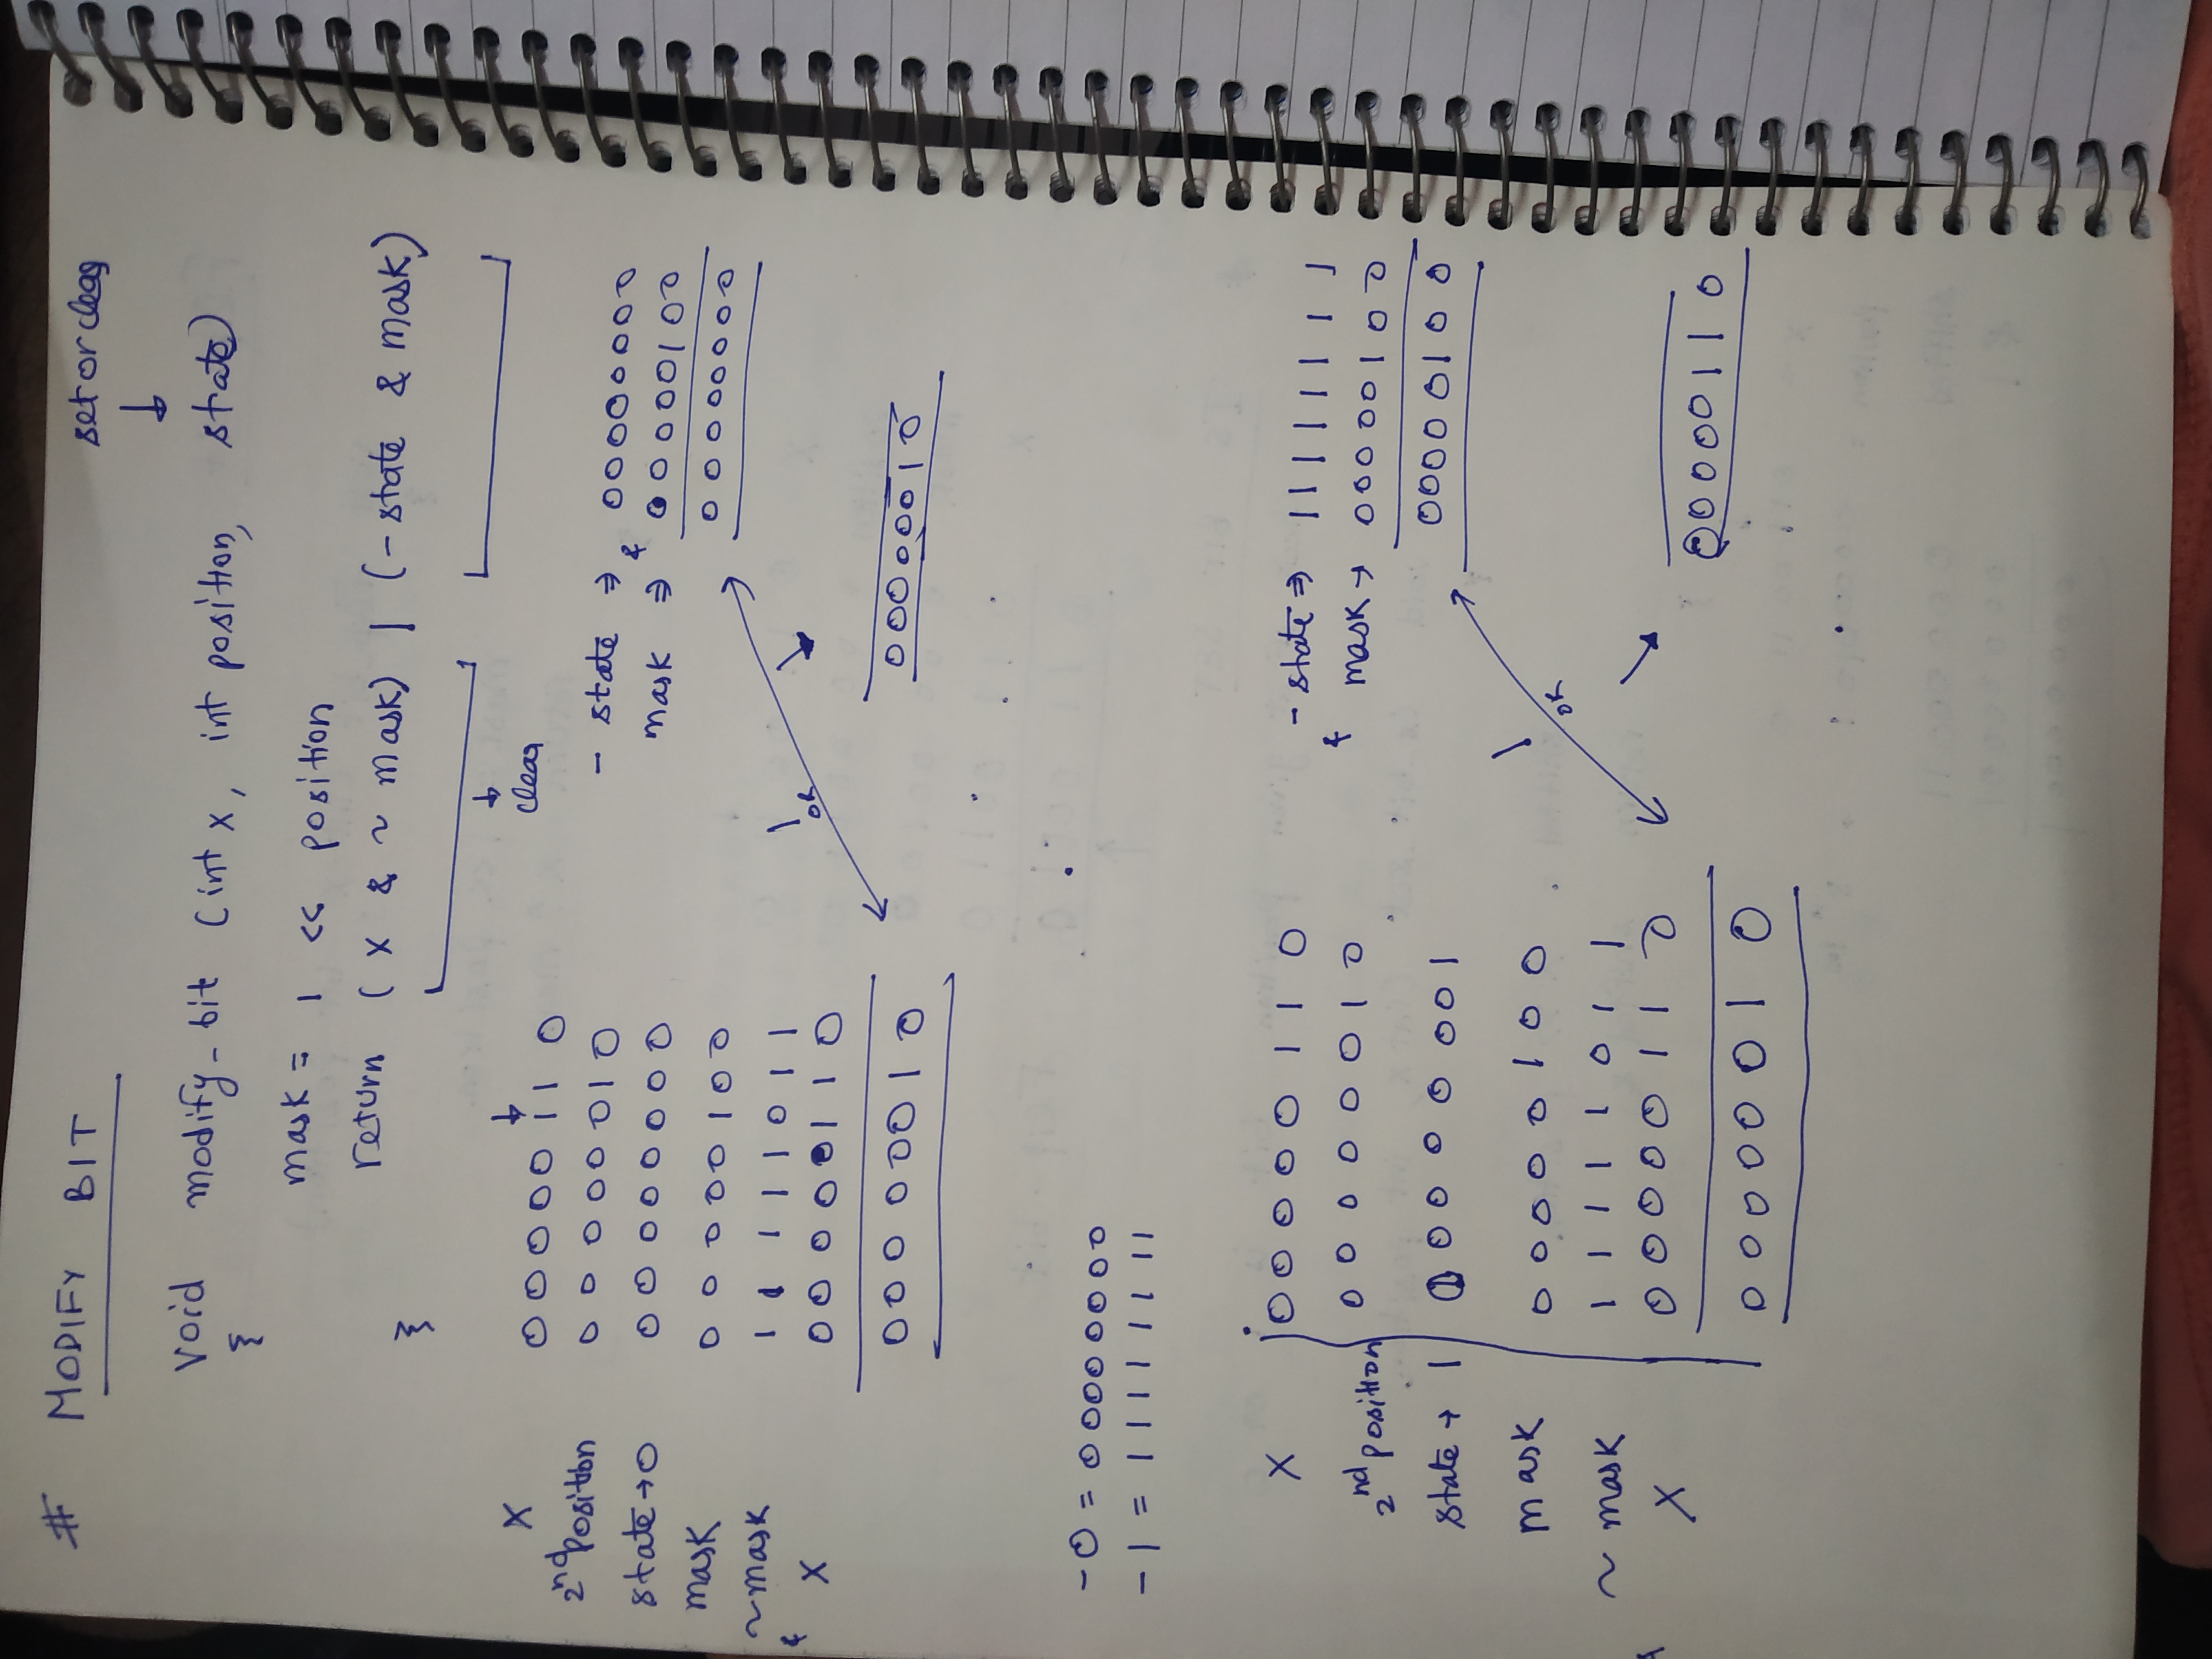 # MODIFY BIT
set or clear
↓
Void modify-bit (int x, int position, state)
{
mask = 1 << position
return (x & ~ mask) | (- state & mask)
}
↓
clear
↓
X 0 0 0 0 0 1 1 0
2nd position 0 0 0 0 0 0 1 0
state → 0 0 0 0 0 0 0 0 0
mask 0 0 0 0 0 1 0 0
~mask 1 1 1 1 1 0 1 1
& X 0 0 0 0 0 1 1 0
0 0 0 0 0 0 1 0
- state ⇒ 0 0 0 0 0 0 0 0
&
mask ⇒ 0 0 0 0 0 1 0 0
0 0 0 0 0 0 0 0
| or
0 0 0 0 0 0 1 0
- 0 = 0 0 0 0 0 0 0 0
- 1 = 1 1 1 1 1 1 1 1
X 0 0 0 0 0 1 1 0
2nd position 0 0 0 0 0 0 1 0
state → 1 0 0 0 0 0 0 0 1
mask 0 0 0 0 0 1 0 0
~ mask 1 1 1 1 1 0 1 1
& X 0 0 0 0 0 1 1 0
0 0 0 0 0 0 1 0
- state ⇒ 1 1 1 1 1 1 1 1
& mask → 0 0 0 0 0 1 0 0
0 0 0 0 0 1 0 0
| or
0 0 0 0 0 1 1 0